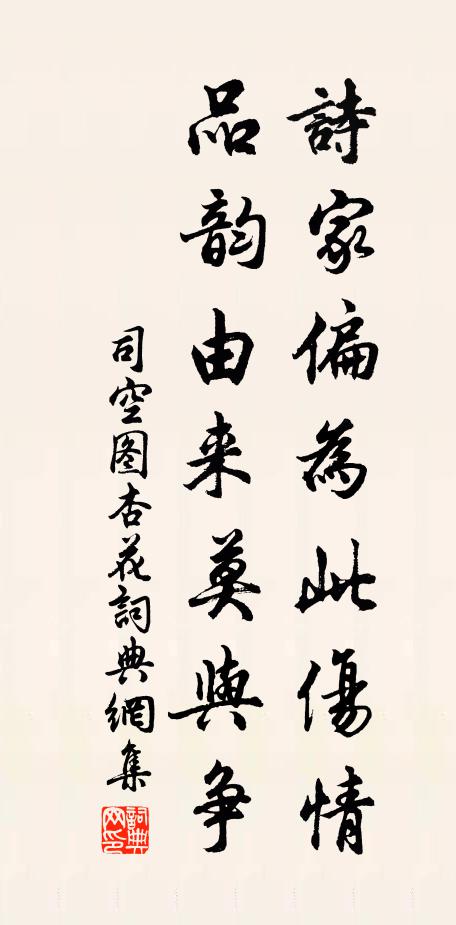 詩家偏為此傷情
品韵由来莫與争
司空图杏花詞典網集
詞典网印